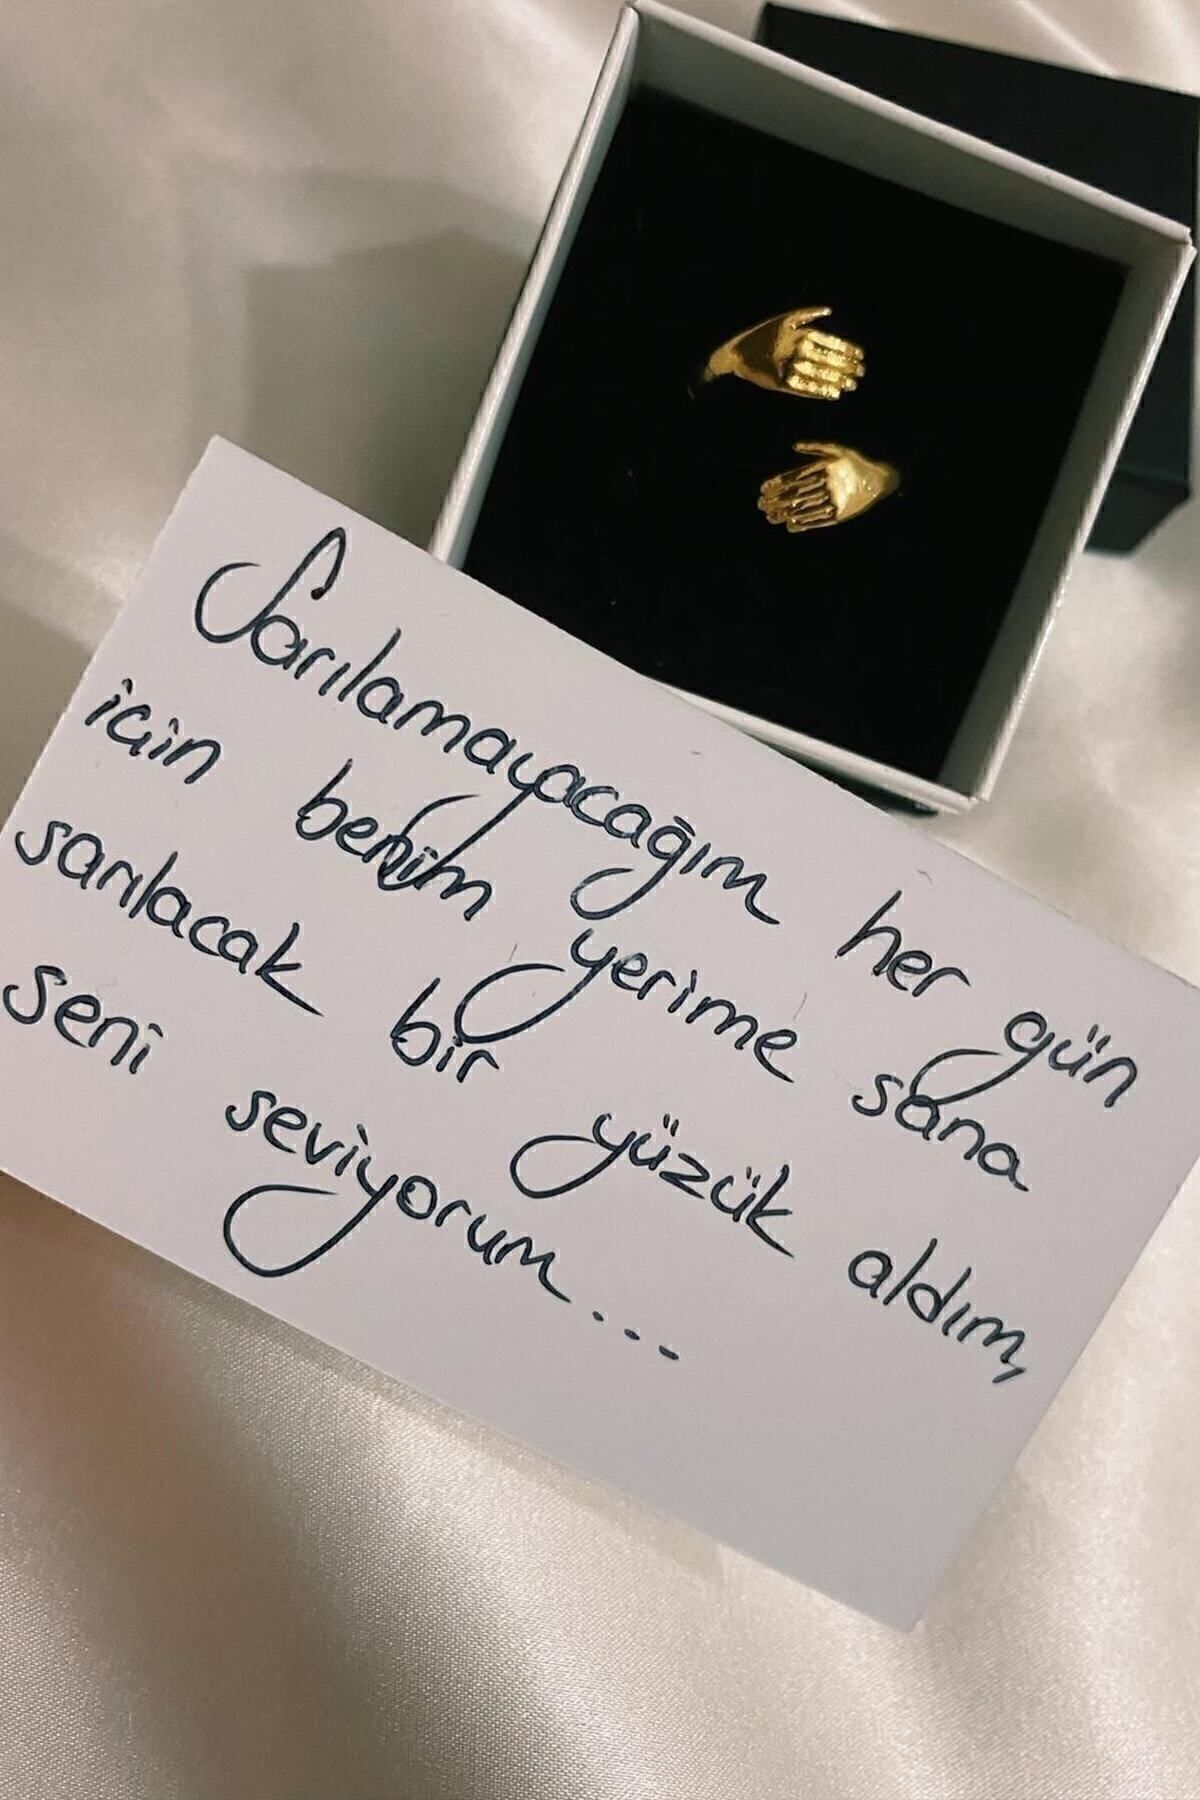 Sarılamayacağım her gün
için benim yerime sana
sarılacak bir yüzük aldım,
seni seviyorum...